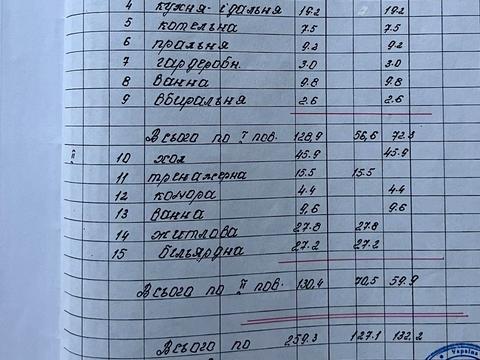 4 кухня-їдальня 19.2 19.2
5 котельна 7.5 7.5
6 пральня 9.2 9.2
7 гардеробн. 3.0 3.0
8 ванна 9.8 9.8
9 вбиральня 2.6 2.6
Всього по I пов. 128,9 56,6 72.3
II 10 хол 45.9 45.9
11 тренажерна 15.5 15.5
12 комора 4.4 4.4
13 ванна 9,6 9.6
14 житлова 27.8 27.8
15 більярдна 27.2 27.2
Всього по II пов. 130,4 70,5 59.9
Всього по 259.3 127.1 132.2
Україна